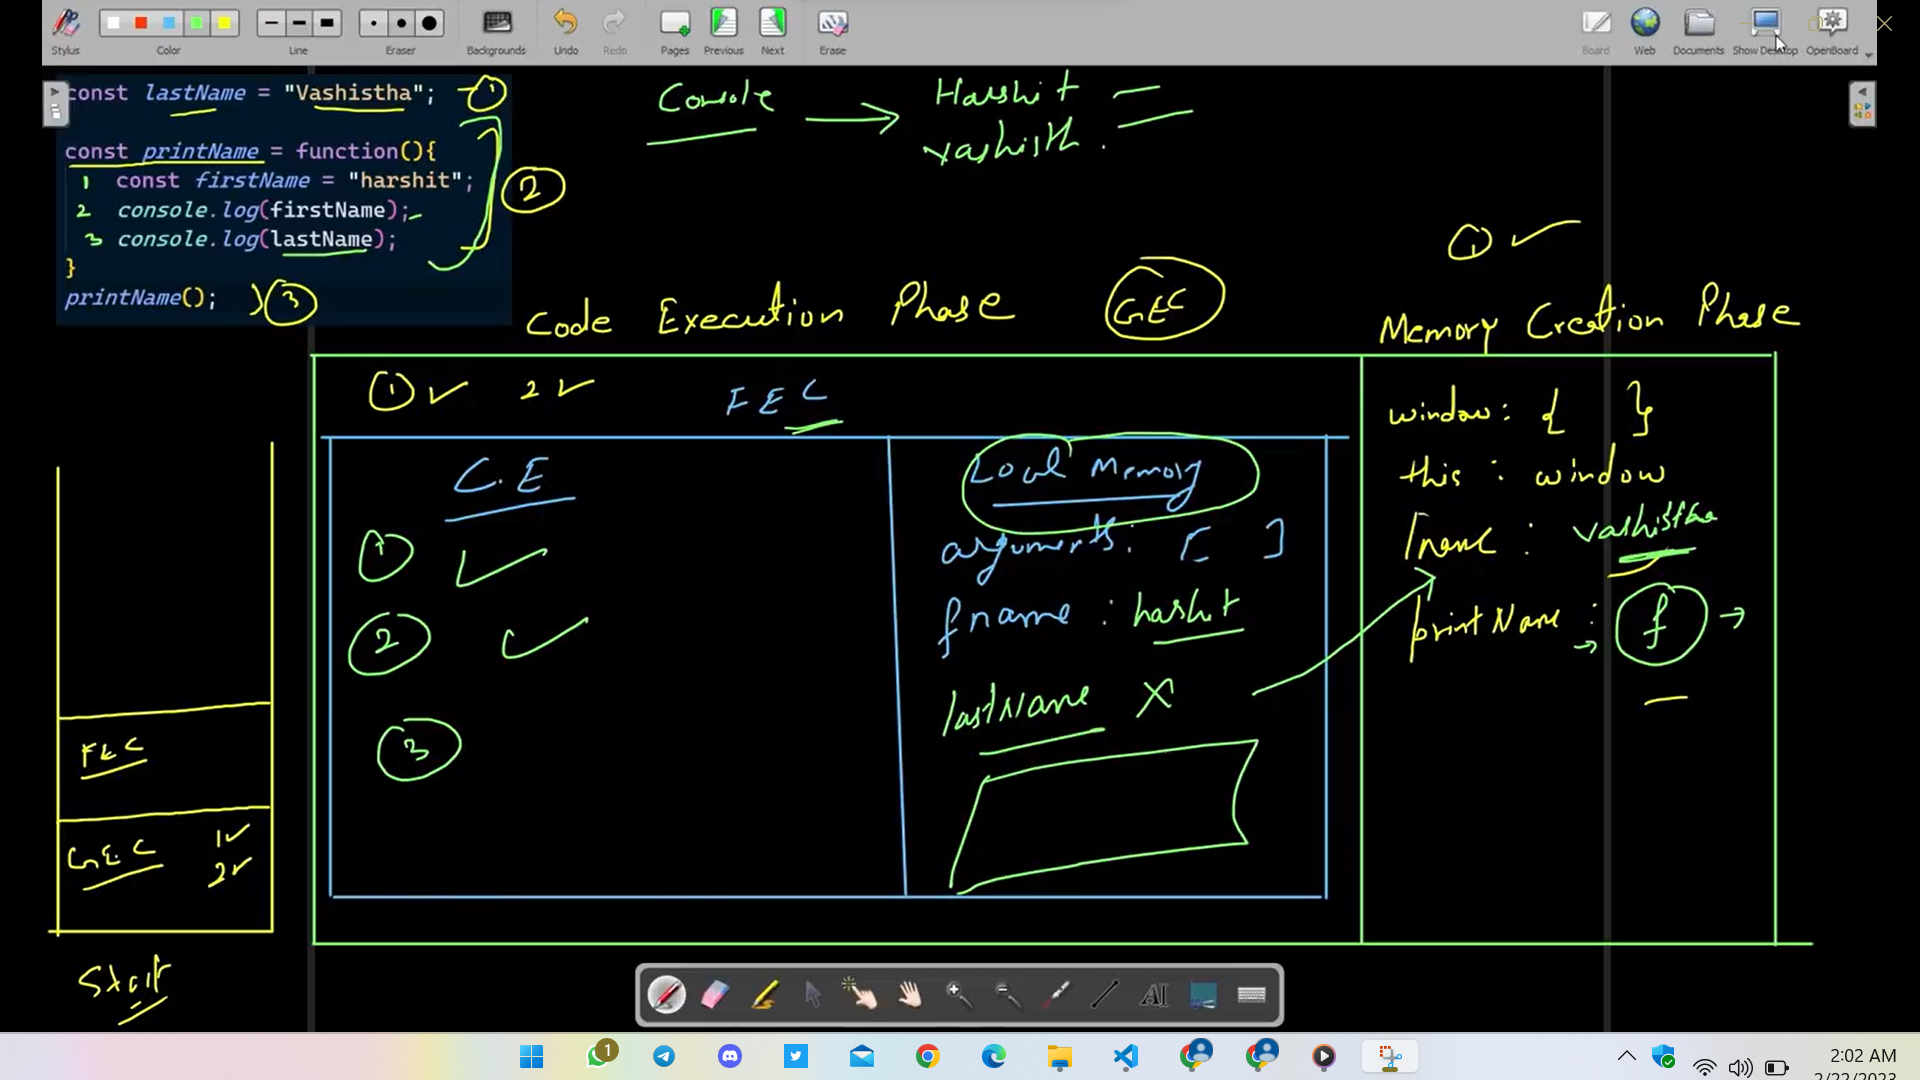 Stylus
Color
Line
Eraser
Backgrounds
Undo
Redo
Pages
Previous
Next
Erase
Board
Web
Documents
Show Desktop
OpenBoard
const lastName = "Vashistha"; 1
const printName = function(){
1 const firstName = "harshit";
2 console.log(firstName);
3 console.log(lastName);
}
2
printName(); 3
Console → Harshit
Vashisth.
1 ✓
Code Execution Phase
GEC
Memory Creation Phase
1 ✓ 2 ✓
FEC
C.E
1 ✓
2 ✓
3
Local Memory
arguments: [ ]
fname : hashit
lastName X
window: { }
this : window
lname : vashistha
printName : f →
FEC
G.E.C 1✓
2✓
Start
AI
1
2:02 AM
2/22/2023